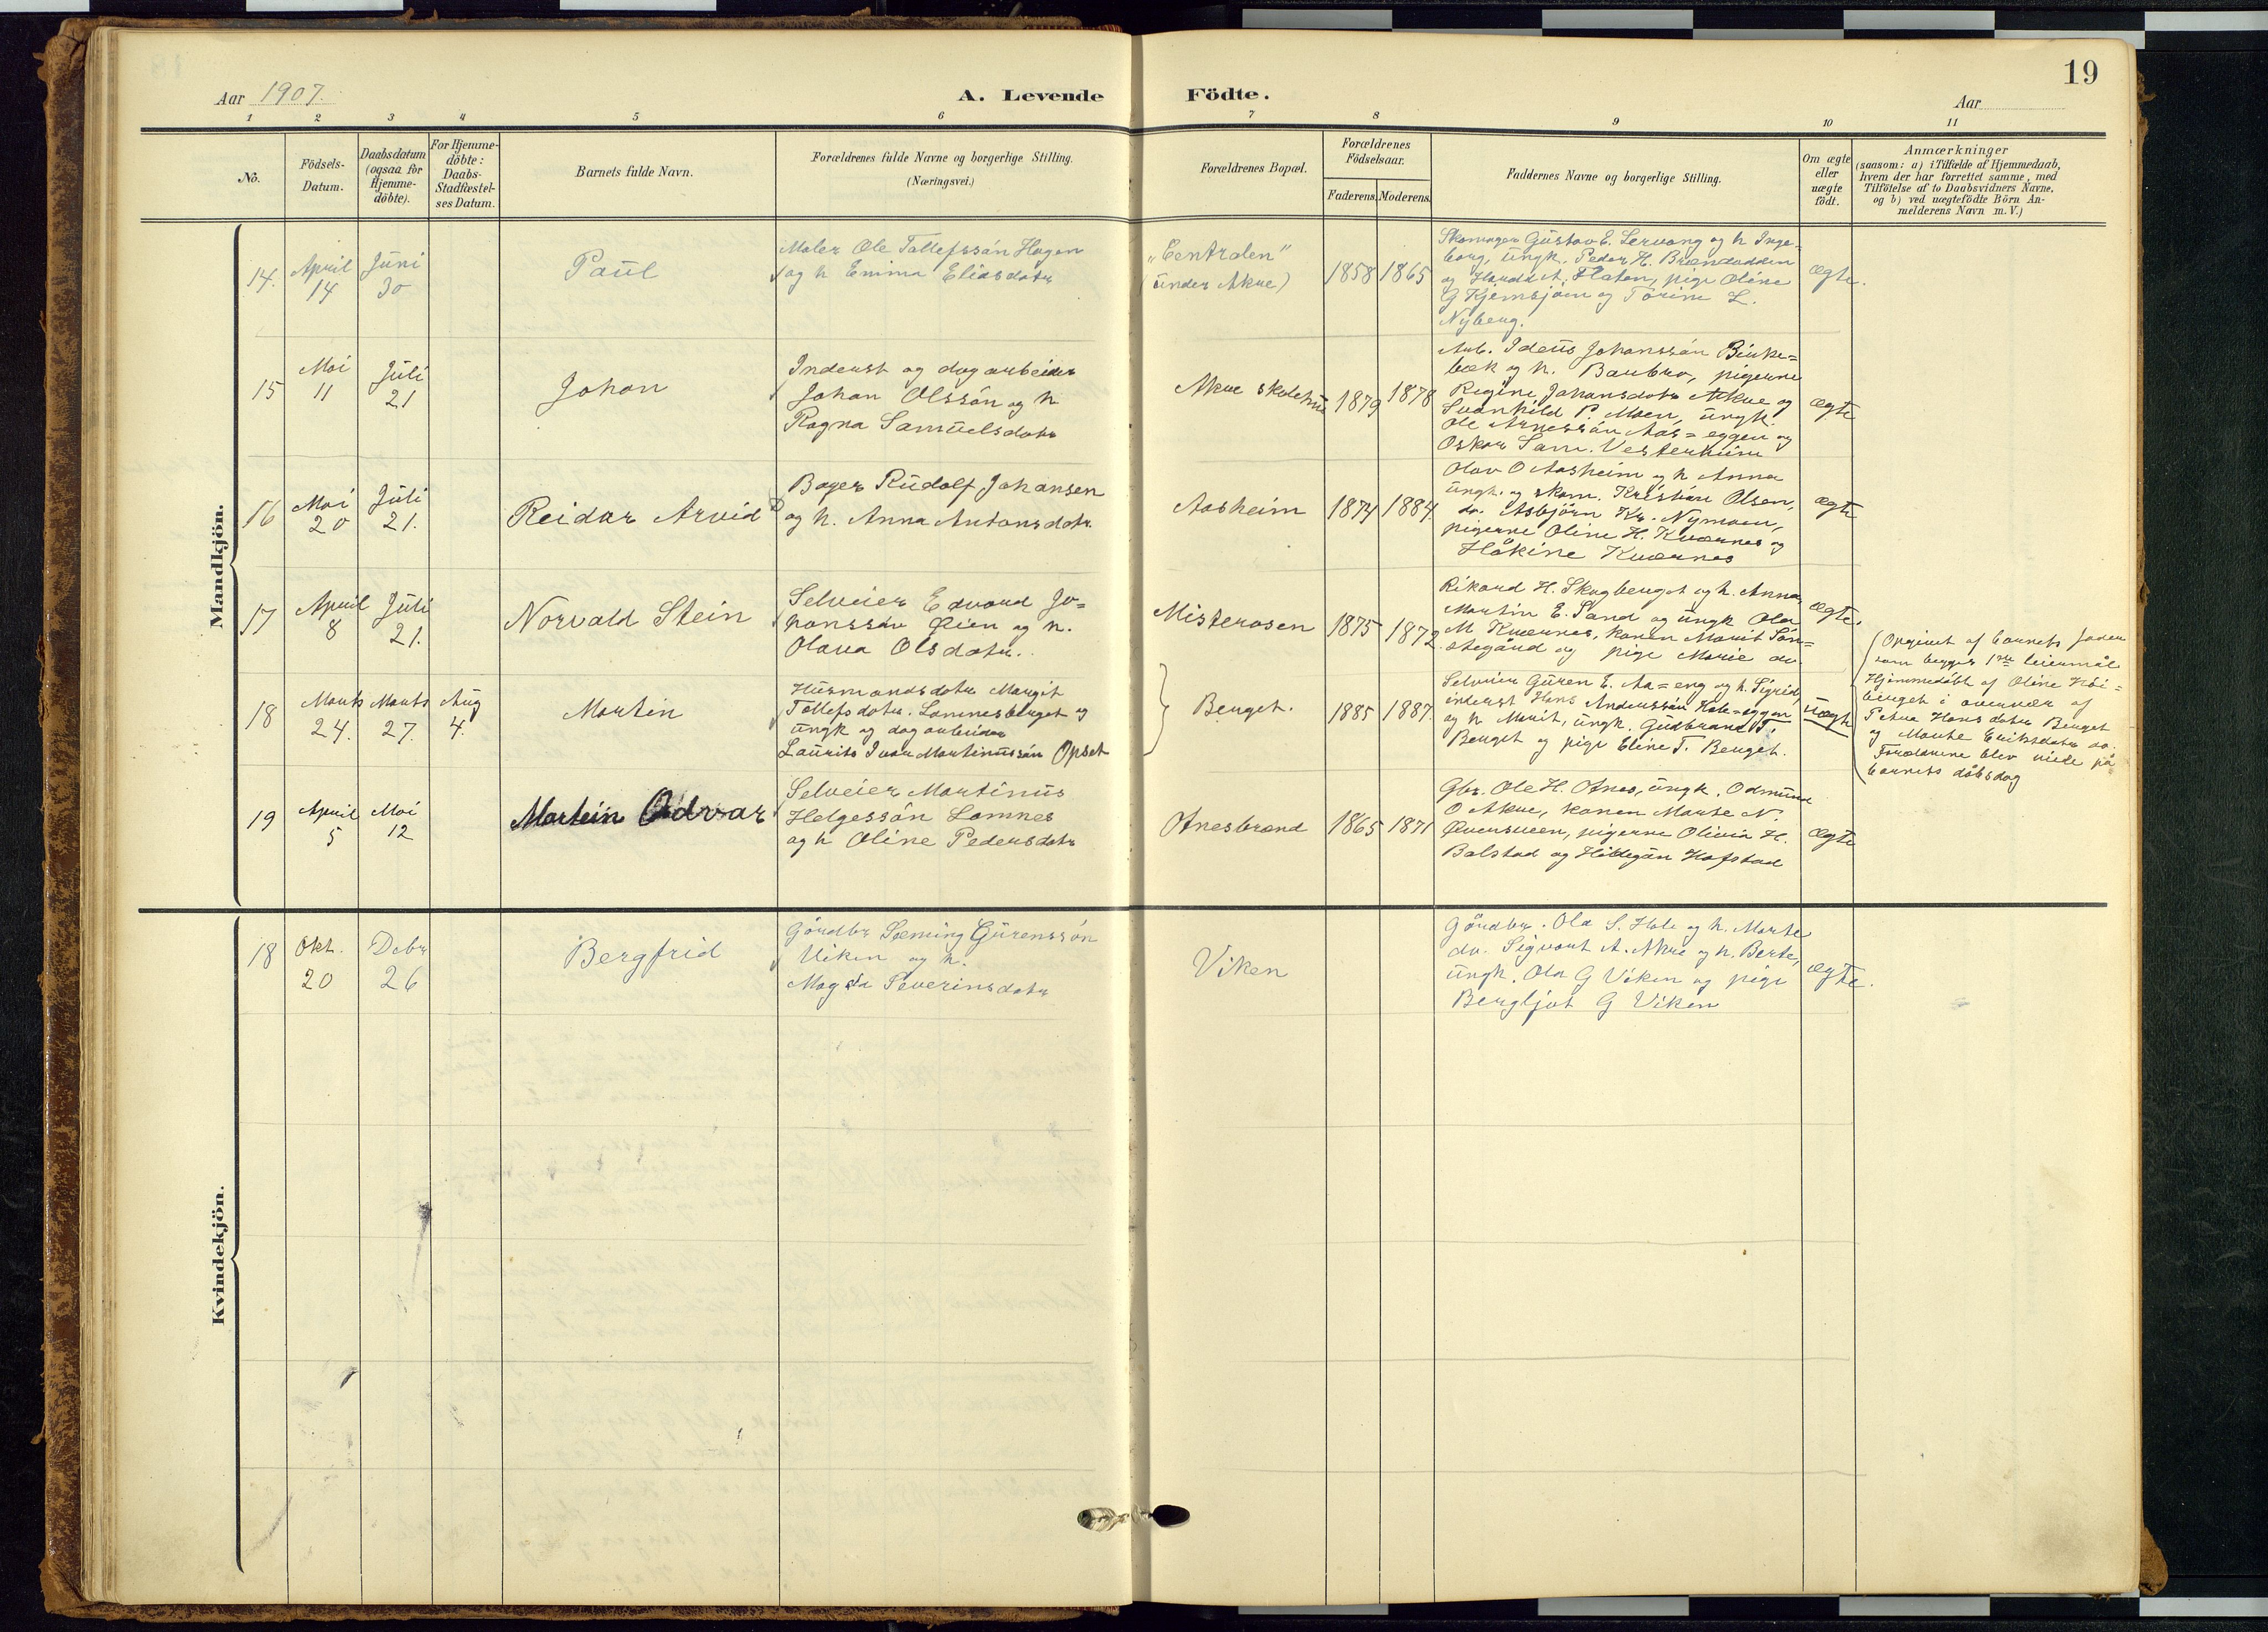 19
Aar 1907.
A. Levende Födte.
Aar
1 2 3 4 5 6 7 8 9 10 11
No.
Födsels-
Datum.
Daabsdatum
(ogsaa for
Hjemme-
döbte).
For Hjemme-
döbte:
Daabs-
Stadfæstel-
ses Datum.
Barnets fulde Navn.
Forældrenes fulde Navne og borgerlige Stilling.
(Næringsvei.)
Forældrenes Bopæl.
Forældrenes
Födselsaar.
Faderens. Moderens.
Faddernes Navne og borgerlige Stilling.
Om ægte
eller
uægte
födt.
Anmærkninger
(saasom: a) i Tilfælde af Hjemmedaab,
hvem der har forrettet samme, med
Tilföielse af to Daabsvidners Navne,
og b) ved uægtefödte Börn An-
melderens Navn m. V.)
Mandkjön.
14.
April
14
Juni
30
Paul
Maler Ole Tollefssøn Hagen
og h Emma Eliasdatr
"Centralen"
(under Akre)
1858 1865
Skomager Gustav E. Lervang og h Inge-
borg, ungk. Peder H. Brændodden
og Harald A. Floten, pige Oline
G Kjemsjøen og Torine L.
Nyberg.
ægte.
15
Mai
11
Juli
21
Johan
Inderst og dagarbeider
Johan Olssøn og h
Ragna Samuelsdatr
Akre skolehus
1879 1878
Arb. Ideus Johanssøn Birke=
bæk og h. Barbro, pigerne
Regine Johansdatr Akre og
Svanhild P. Moen, ungk.
Ole Arnessøn Aas=eggen og
Oskar Sam. Vesterheim
ægte
16
Mai
20
Juli
21.
Reidar Arvid
Bager Rudolf Johansen
og h. Anna Antonsdatr
Aasheim
1874 1884.
Olav O Aasheim og h Anna
ungk. og skom. Kristian Olsen,
do. Asbjørn Kr. Nymoen,
pigerne Oline H. Kværnes og
Håkine Kværnes
ægte
17
April
8
Juli
21.
Norvald Stein
Selveier Edvard Jo=
hanssøn Øien og h.
Olava Olsdatr.
Misterosen
1875 1872.
Rikard H. Skogberget og h. Anna,
Martin E. Sand og ungk Ola
M Kværnes, konen Marit Søn=
stegård og pige Marie do.
ægte.
18
Marts
24.
Marts
27.
Aug
4.
Martin
Husmandsdatr Margit
Tollefsdatr. Lomnesberget og
ungk og dagarbeider
Laurits Ivar Martinussøn Opset
Berget.
1885 1887.
Selveier Guren E. Aa=eng og h. Sigrid,
inderst Hans Anderssøn Hole=eggen
og h Marit, ungk. Gudbrand T.
Berget og pige Eline T. Berget.
uægte
Opgivet af barnets fader
som begges 1ste leiermål
Hjemmedøbt af Oline Høi=
berget i overvær af
Petra Hansdatr Berget
og Marte Eriksdatr do.
Forældrene blev viede på
barnets dåbsdag
19
April
5
Mai
12
Martein Odvar
Selveier Martinus
Helgessøn Lomnes
og h Oline Pedersdatr
Otnesbrænd
1865 1871
Gbr. Ole H. Otnes, ungk. Odmund
O Akre, konen Marte N.
Øversveen, pigerne Olivia H.
Bolstad og Hildegan Hofstad
ægte
Kvindekjön.
18
Okt.
20
Debr
26
Bergfrid
Gårdbr Sæming Gurenssøn
Viken og h.
Magda Severinsdatr
Viken
Gårdbr. Ola S. Hole og h. Marte
do. Sigvart A. Akre og h. Berte,
ungk. Ola G Viken og pige
Bergljot G Viken
ægte.